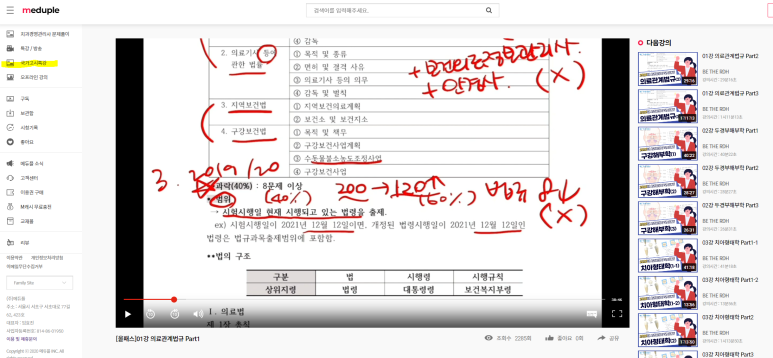 meduple
검색어를 입력해주세요.
치과경영관리사 문제풀이
특강 / 방송
국가고시특강
오프라인 강의
구독
보관함
시청기록
좋아요
메듀플 소식
고객센터
이용권 구매
교재몰
리뷰
이용약관 개인정보처리방침
Family Site
④ 감독
2. 의료기사 등에
관한 법률
① 목적 및 종류
② 면허 및 결격 사유
③ 의료기사 등의 의무
④ 감독 및 벌칙
3. 지역보건법
① 지역보건의료계획
② 보건소 및 보건지소
4. 구강보건법
① 목적 및 책무
② 구강보건사업계획
③ 수돗물불소농도조정사업
④ 구강보건사업
+ 보건의료정보관리사.
+ 안경사.
(X)
3. 2019/20
*과락(40%) : 8문제 이상
(40%)
200 → 120↑
(60%)
(X)
*범위
→ 시험시행일 현재 시행되고 있는 법령을 출제.
ex) 시험시행일이 2021년 12월 12일이면, 개정된 법령시행일이 2021년 12월 12일인
법령은 법규과목출제범위에 포함함.
**법의 구조
구분 법 시행령 시행규칙
상위지령 법령 대통령령 보건복지부령
I. 의료법
제 1장 총칙
[올패스]01강 의료관계법규 Part1
조회수 2285회 좋아요 0회 공유
다음강의
01강 의료관계법규 Part2
BE THE RDH
의료관계법규
01강 의료관계법규 Part3
BE THE RDH
의료관계법규
02강 두경부해부학 Part1
BE THE RDH
구강해부학(1)
02강 두경부해부학 Part2
BE THE RDH
구강해부학(2)
02강 두경부해부학 Part3
BE THE RDH
구강해부학(3)
03강 치아형태학 Part1 (1-1)
BE THE RDH
치아형태학(1-1)
03강 치아형태학 Part1 (1-2)
BE THE RDH
치아형태학(1-2)
03강 치아형태학 Part2
BE THE RDH
치아형태학(2)
03강 치아형태학 Part3